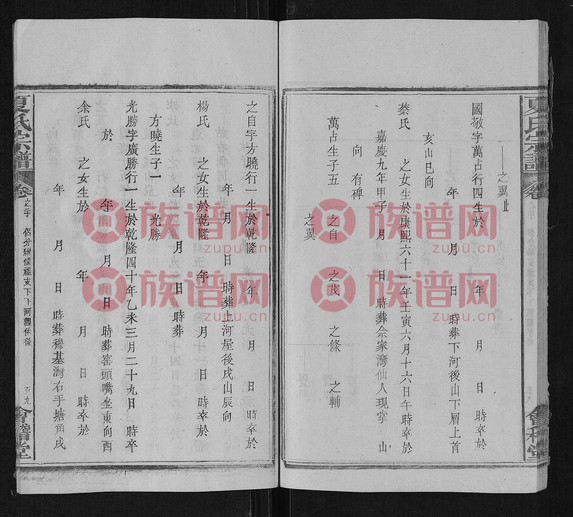 之翼
國敬字萬占行四生於 年 月 日 時葬下河後山下層上首
亥山巳向
蔡氏 之女生於康熙六十一年壬寅六月十六日午時卒於
嘉慶九年甲子 月 日時葬佘家灣仙人現掌 山
向有碑
萬占生子五 之自 之茂 之條 之輔
之翼
之自字方曉行一生於乾隆 年 月 日 時卒於
年 月 日時葬上河屋後戌山辰向
楊氏 之女生於乾隆 年 月 日 時卒於
年 月 日時葬
方曉生子一 光勝
光勝字廣勝行一生於乾隆四十年乙未三月二十九日 時卒
於 年 月 日 時葬窰頭嘴坐東向西
余氏 之女生於 年 月 日 時卒於
年 月 日時葬穆基灣右手塘角戌
夏氏宗譜
卷
會稽堂
夏氏宗譜
卷之
會稽堂
族谱网
zupu.cn
族谱网
zupu.cn
族谱网
zupu.cn
族谱网
zupu.cn